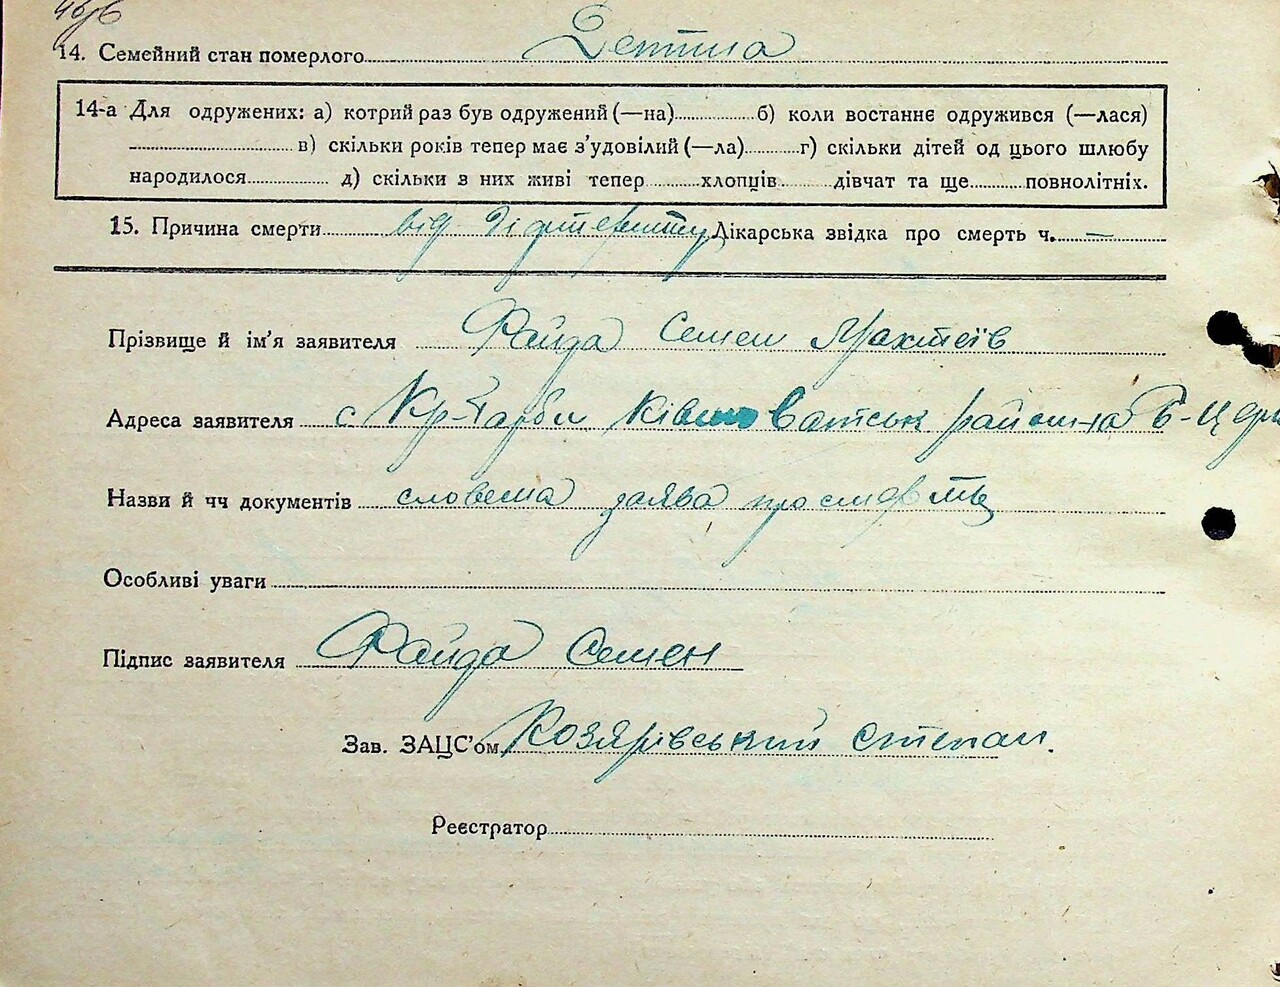 14. Семейний стан померлого Дитина
14-а Для одружених: а) котрий раз був одружений (—на) б) коли востаннє одружився (—лася)
в) скільки років тепер має з'удовілий (—ла) г) скільки дітей од цього шлюбу
народилося д) скільки з них живі тепер хлопців дівчат та ще повнолітніх.
15. Причина смерти від дифтериту Лікарська звідка про смерть ч. —
Прізвище й ім'я заявителя Файда Семен
Адреса заявителя с Кр-Гарби Ківшоватськ района Б-Церк
Назви й чч документів словесна заява про смерть
Особливі уваги
Підпис заявителя Файда Семен
Зав. ЗАЦС'ом Козярівський Степан.
Реєстратор